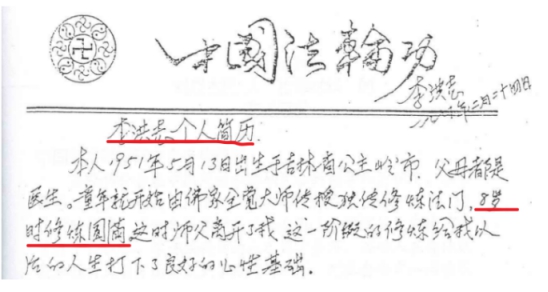 中國法輪功
李洪志
一九九 年二月二十四日
李洪志个人简历
本人1951年5月13日出生于吉林省公主岭市.父母都是
医生。童年就开始由佛家全觉大师传授独传修炼法门,8岁
时修炼圆满,这时师父离开了我.这一阶段的修炼给我以
后的人生打下了良好的心性基础.